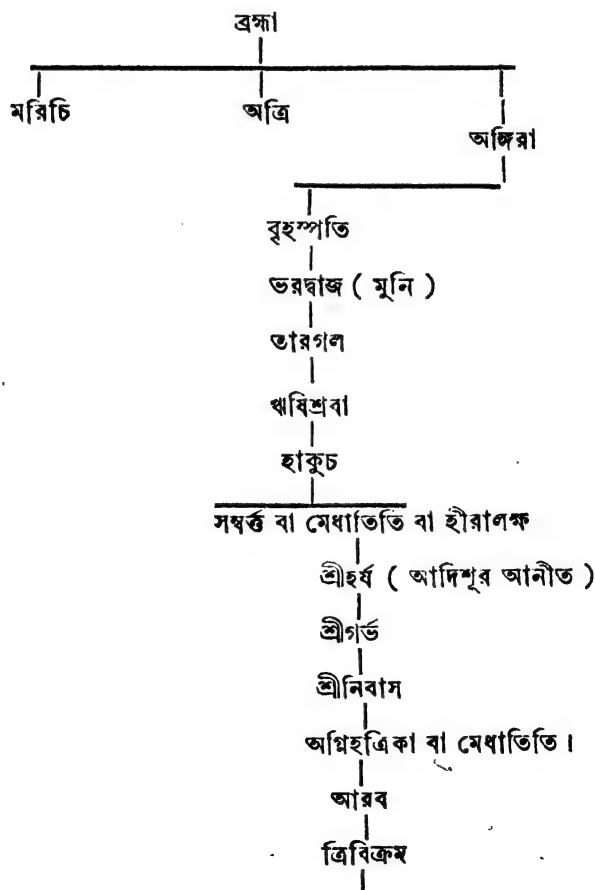 ব্রহ্মা
মরিচি অত্রি
অঙ্গিরা
বৃহস্পতি
ভরদ্বাজ ( মুনি )
তারগল
ঋষিশ্রবা
হাকুচ
সম্বর্ত্ত বা মেধাতিতি বা হীরালক্ষ
শ্রীহর্ষ ( আদিশূর আনীত )
শ্রীগর্ভ
শ্রীনিবাস
অগ্নিহত্রিকা বা মেধাতিতি ।
আরব
ত্রিবিক্রম